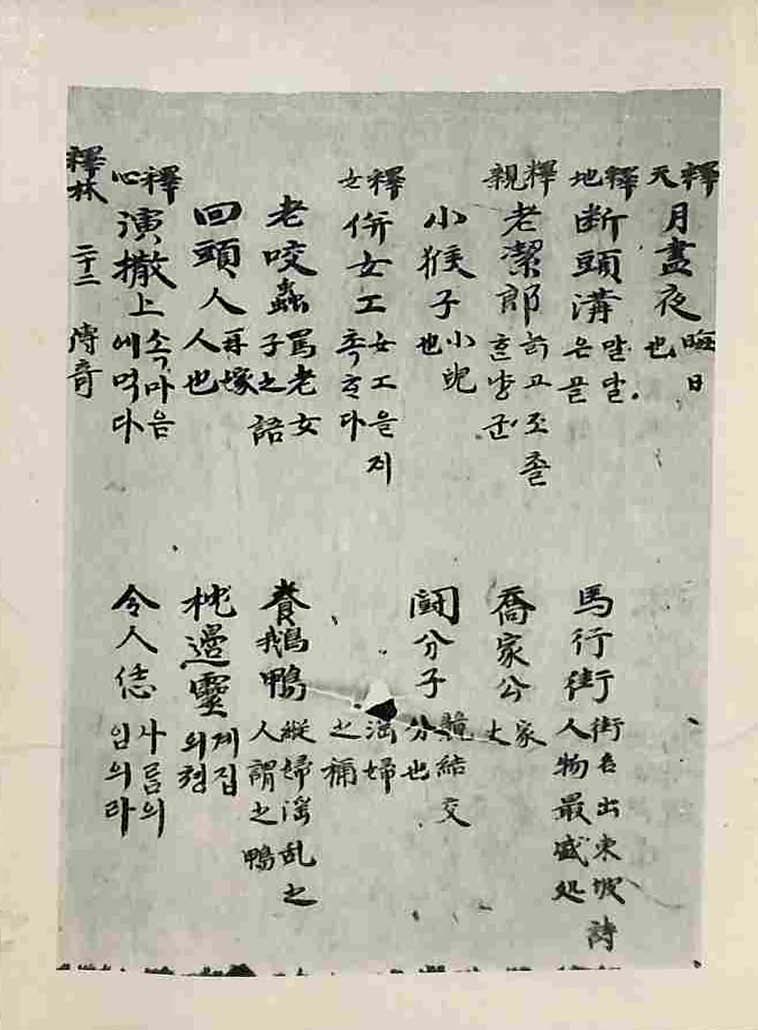 釋天 月盡夜 晦日也
釋地 断頭溝 말달은골
馬行街 街名出東坡詩人物最盛処
釋親 老潔郎 늙고조촐한낭군
喬家公 家大
小猴子 小児也
闘分子 競結交分也
釋女 併女工 女工을지촉하다
淫婦之稱
老咬蟲 罵老女子之語
養鵝鴨 縱婦淫乱之人謂之鴨
回頭人 再塚人也
枕邊靈 계집의령
釋心 演撒上 속마음에먹다
令人恁 나름의임의라
釋林 二十二 傳奇